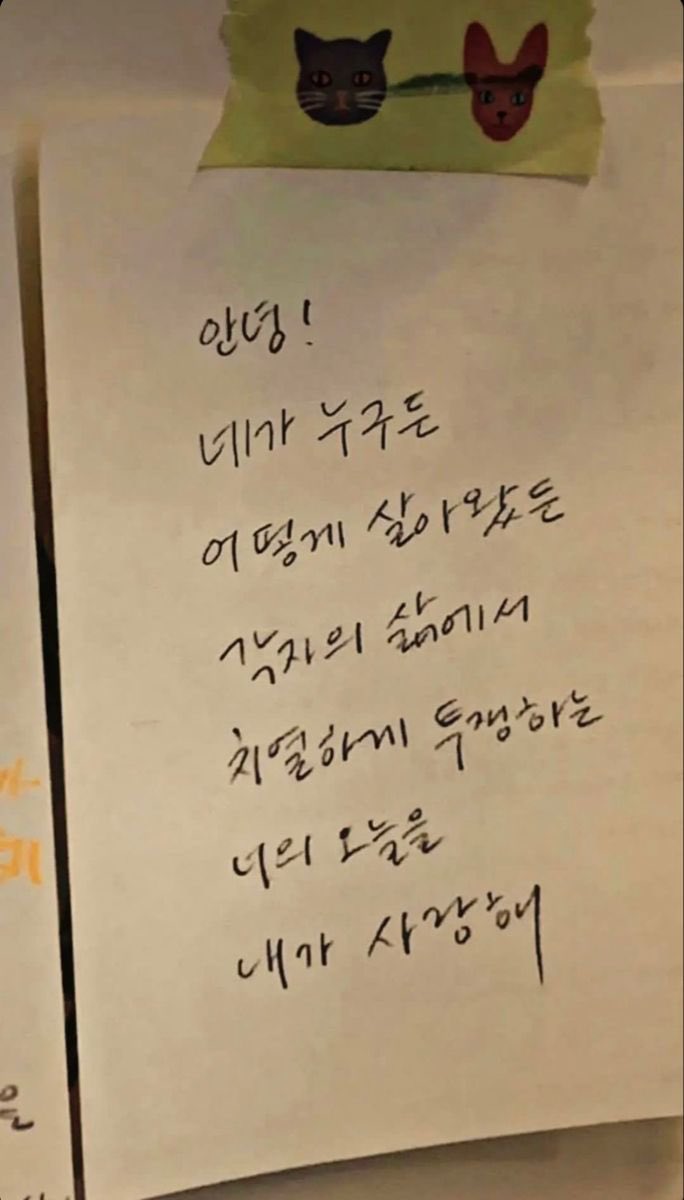 안녕!
네가 누구든
어떻게 살아왔든
각자의 삶에서
치열하게 투쟁하는
너의 오늘을
내가 사랑해
을